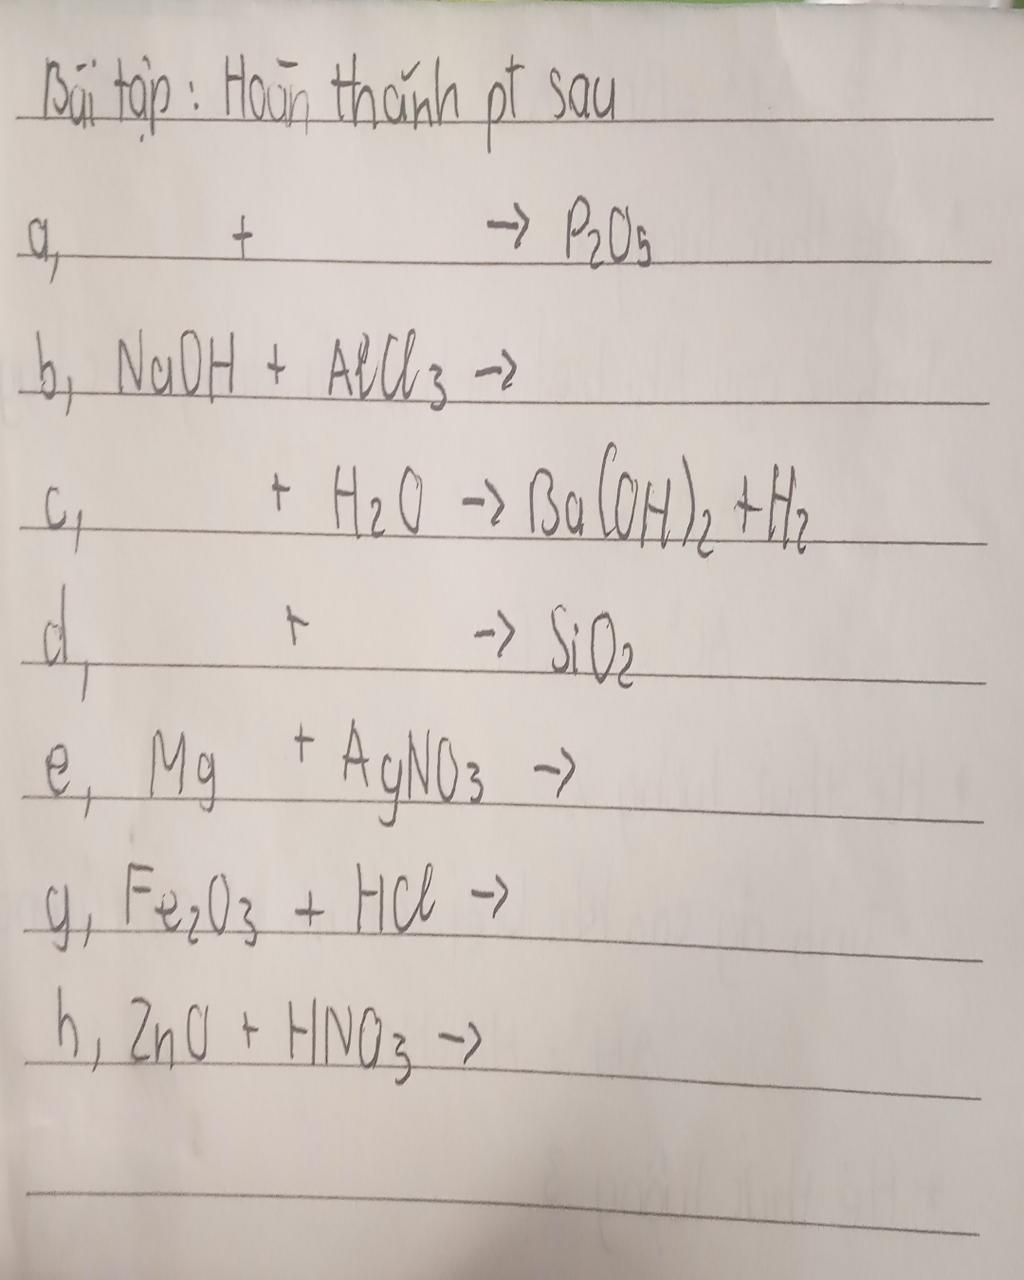 Bài tập : Hoàn thành pt sau
a, + → P₂O₅
b, NaOH + AlCl₃ →
c, + H₂O → Ba(OH)₂ + H₂
d, + → SiO₂
e, Mg + AgNO₃ →
g, Fe₂O₃ + HCl →
h, ZnO + HNO₃ →